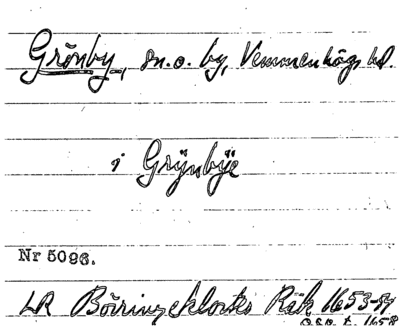 Grönby, sn. o. by, Vemmenhögs hd.
i Grÿnbÿe
Nr 5096.
LR Börringeklosters Räk 1653-54
o.s.v. t. 1658